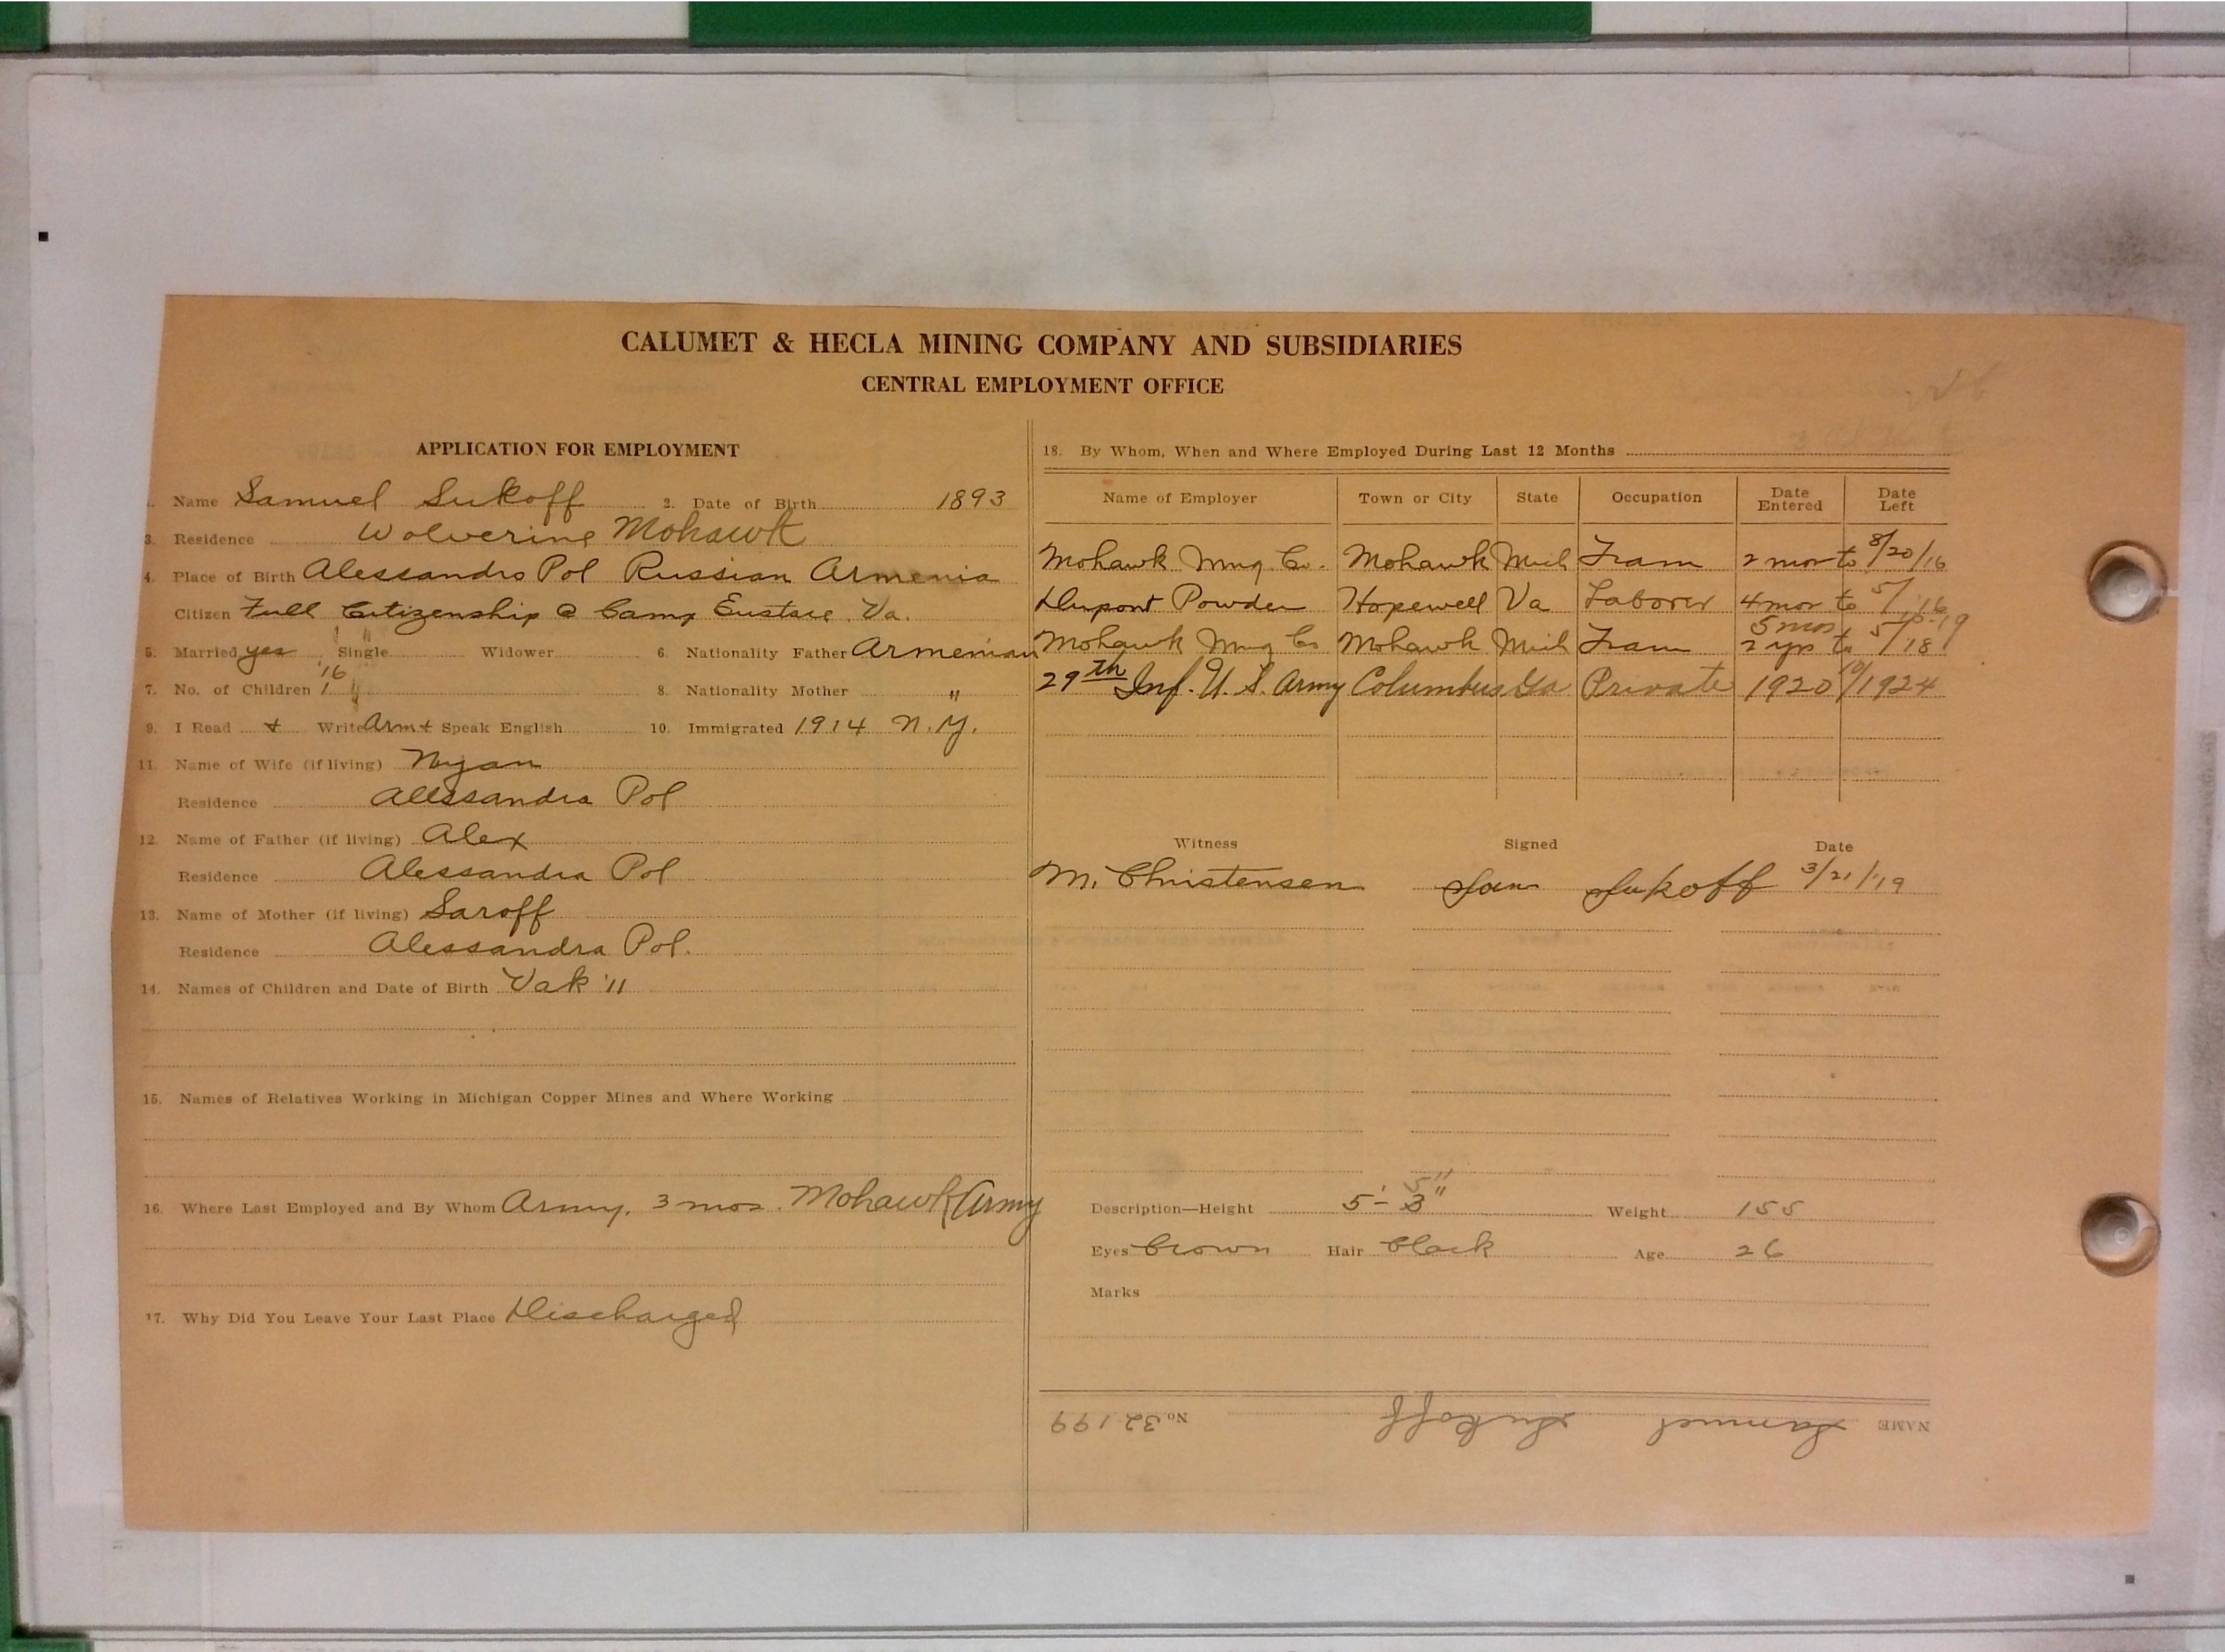 CALUMET & HECLA MINING COMPANY AND SUBSIDIARIES
CENTRAL EMPLOYMENT OFFICE
APPLICATION FOR EMPLOYMENT
1. Name Samuel Sukoff 2. Date of Birth 1893
3. Residence Wolverine Mohawk
4. Place of Birth Alessandro Pol Russian Armenia
Citizen Full Citizenship @ Camp Eustace Va.
5. Married yes Single " Widower 6. Nationality Father Armenian
'16
7. No. of Children 1 8. Nationality Mother "
9. I Read + Write Arm + Speak English 10. Immigrated 1914 N.Y.
11. Name of Wife (if living) Nyan
Residence Alessandra Pol
12. Name of Father (if living) Alex
Residence Alessandra Pol
13. Name of Mother (if living) Saroff
Residence Alessandra Pol.
14. Names of Children and Date of Birth Vak '11
15. Names of Relatives Working in Michigan Copper Mines and Where Working
16. Where Last Employed and By Whom Army. 3 mos. Mohawk Army
17. Why Did You Leave Your Last Place Discharged
18. By Whom, When and Where Employed During Last 12 Months
Name of Employer Town or City State Occupation Date Entered Date Left
Mohawk Mng Co. Mohawk Mich Tram 2 mos to 8/20/16
Dupont Powder Hopewell Va Laborer 4 mos to 5/16
5 mos -19
Mohawk Mng Co Mohawk Mich Tram 2 yrs to 5/18
29th Inf. U. S. Army Columbus Ga Private 1920 10/1924
Witness Signed Date
M. Christensen Sam Sukoff 3/21/19
5"
Description—Height 5'-3" Weight 155
Eyes Brown Hair Black Age 26
Marks
NAME Samuel Sukoff No. 32199